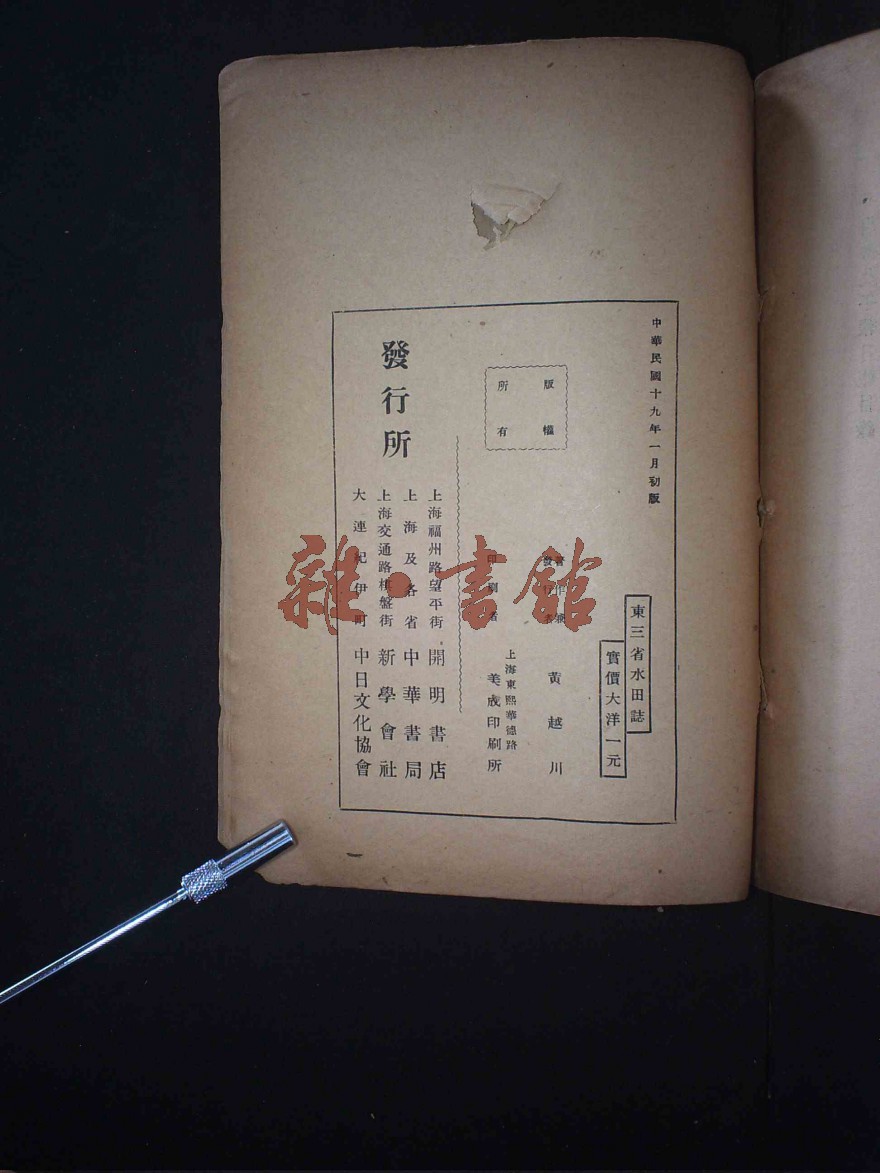 中華民國十九年一月初版
東三省水田誌
實價大洋一元
版權
所有
著作兼
發行者
黃越川
印刷者
上海東熙華德路
美成印刷所
發行所
上海福州路望平街 開明書店
上海及各省 中華書局
上海交通路棋盤街 新學會社
大連紀伊町 中日文化協會
雜·書館